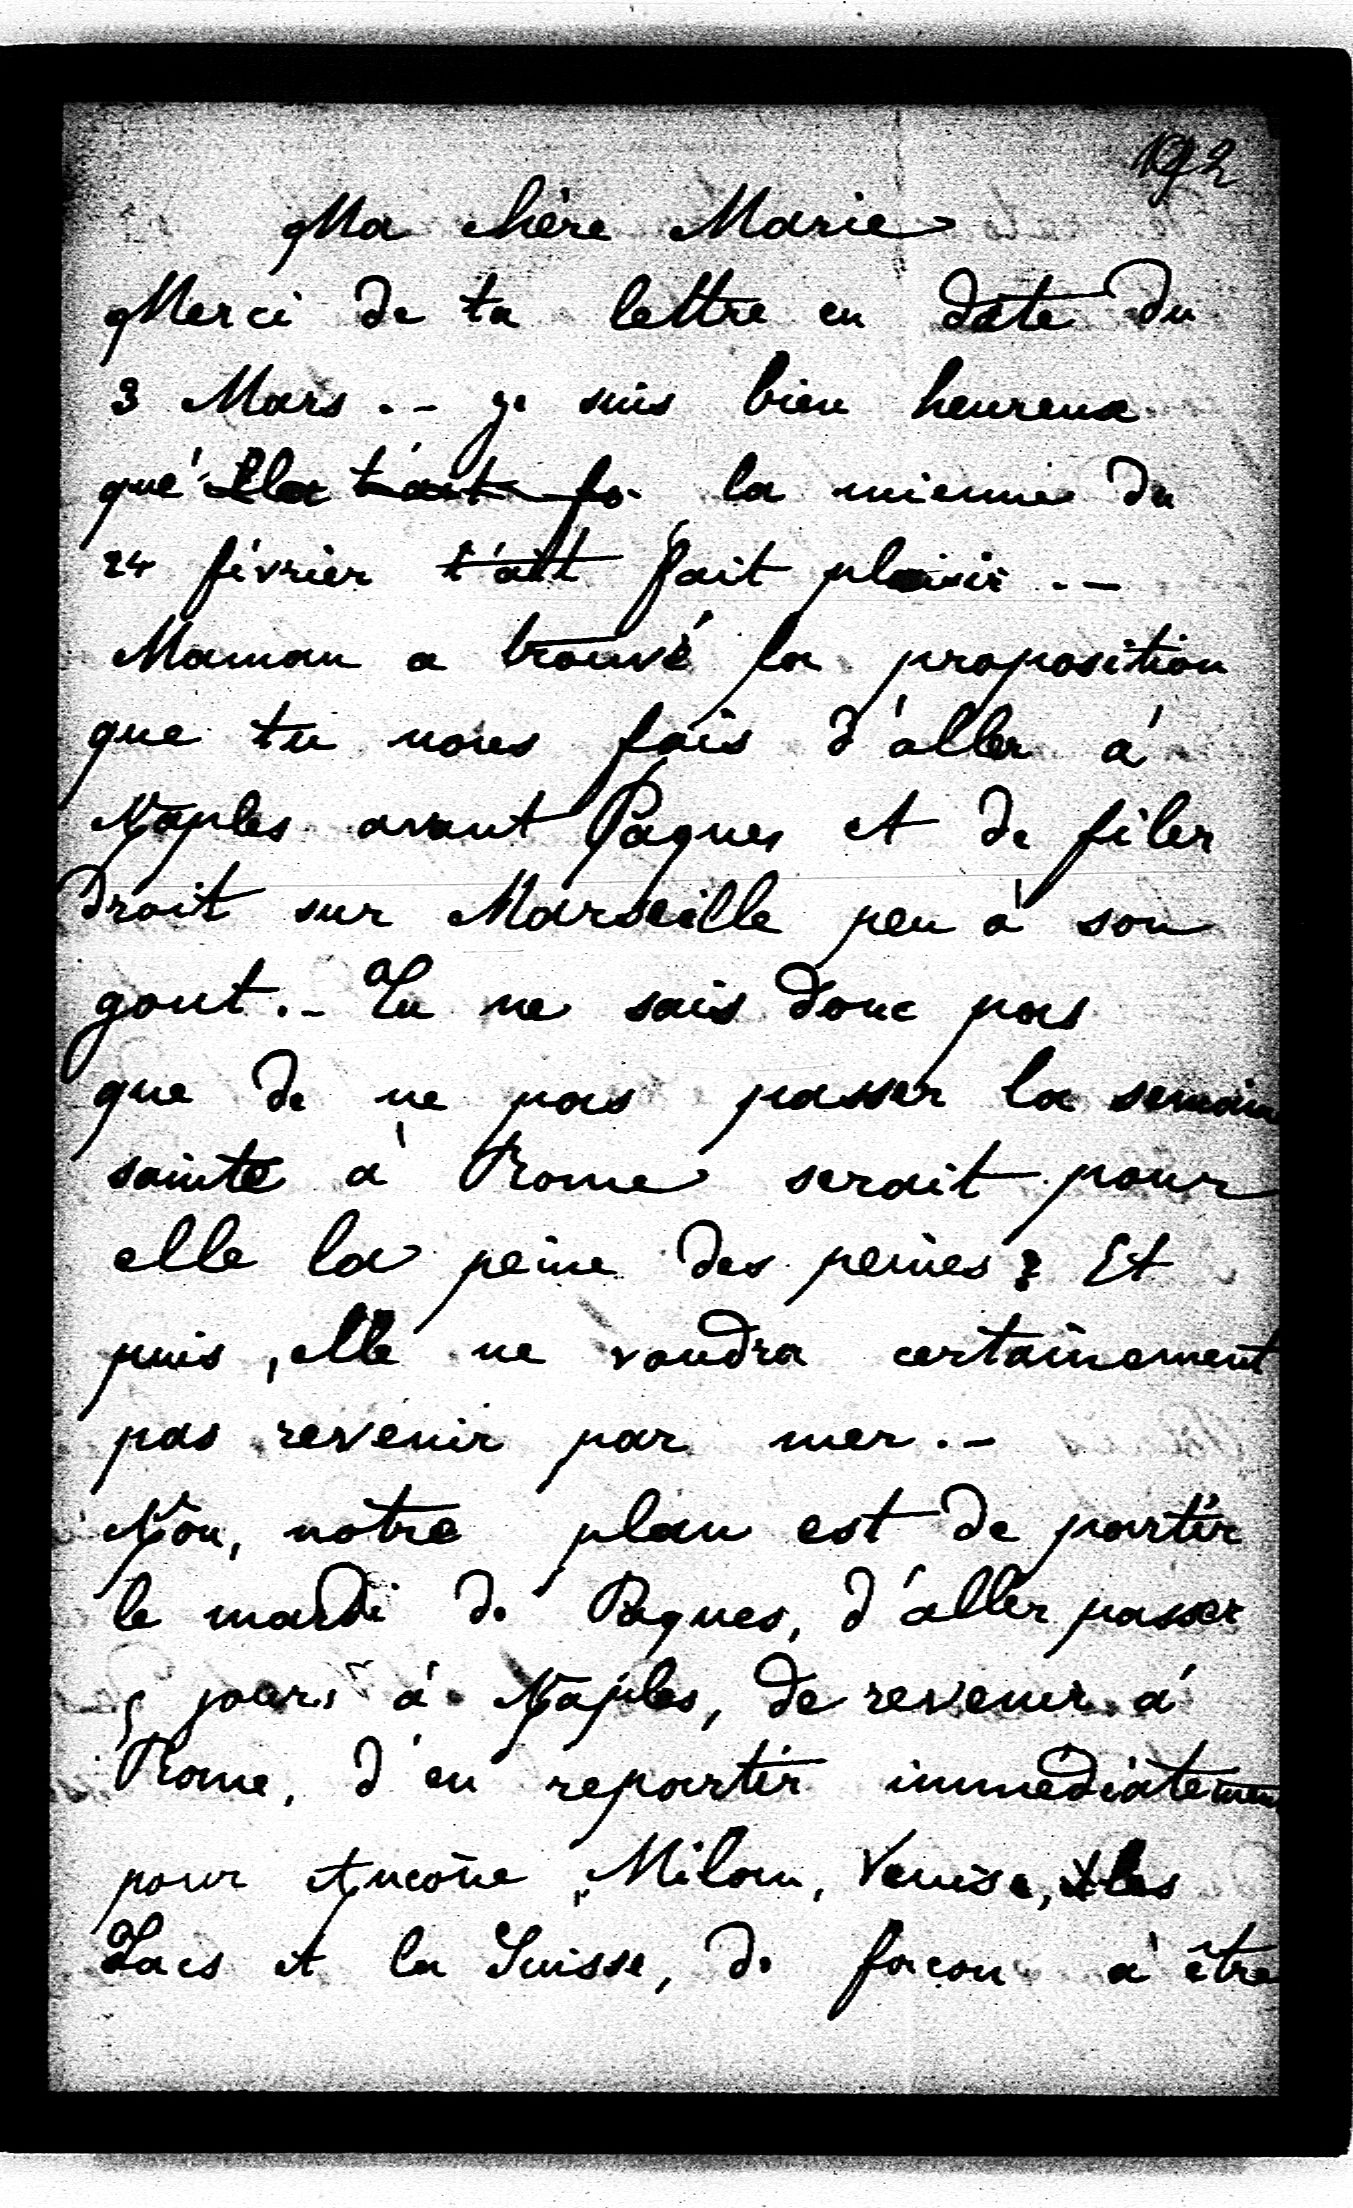 192
Ma chère Marie
Merci de ta lettre en date du
3 Mars. - Je suis bien heureux
que la mienne du
24 février t'ait fait plaisir. -
Maman a trouvé la proposition
que tu nous fais d'aller à
Naples avant Paques et de filer
droit sur Marseille peu à son
gout. - Tu ne sais donc pas
que de ne pas passer la semain
sainte à Rome serait pour
elle la peine des peines? Et
puis, elle ne voudra certainement
pas revenir par mer. -
Non, notre plan est de partir
le mardi de Paques, d'aller passer
5 jours à Naples, de revenir à
Rome, d'en repartir immédiatemen
pour Ancône, Milan, Venise, les
Lacs et la Suisse, de façon à être